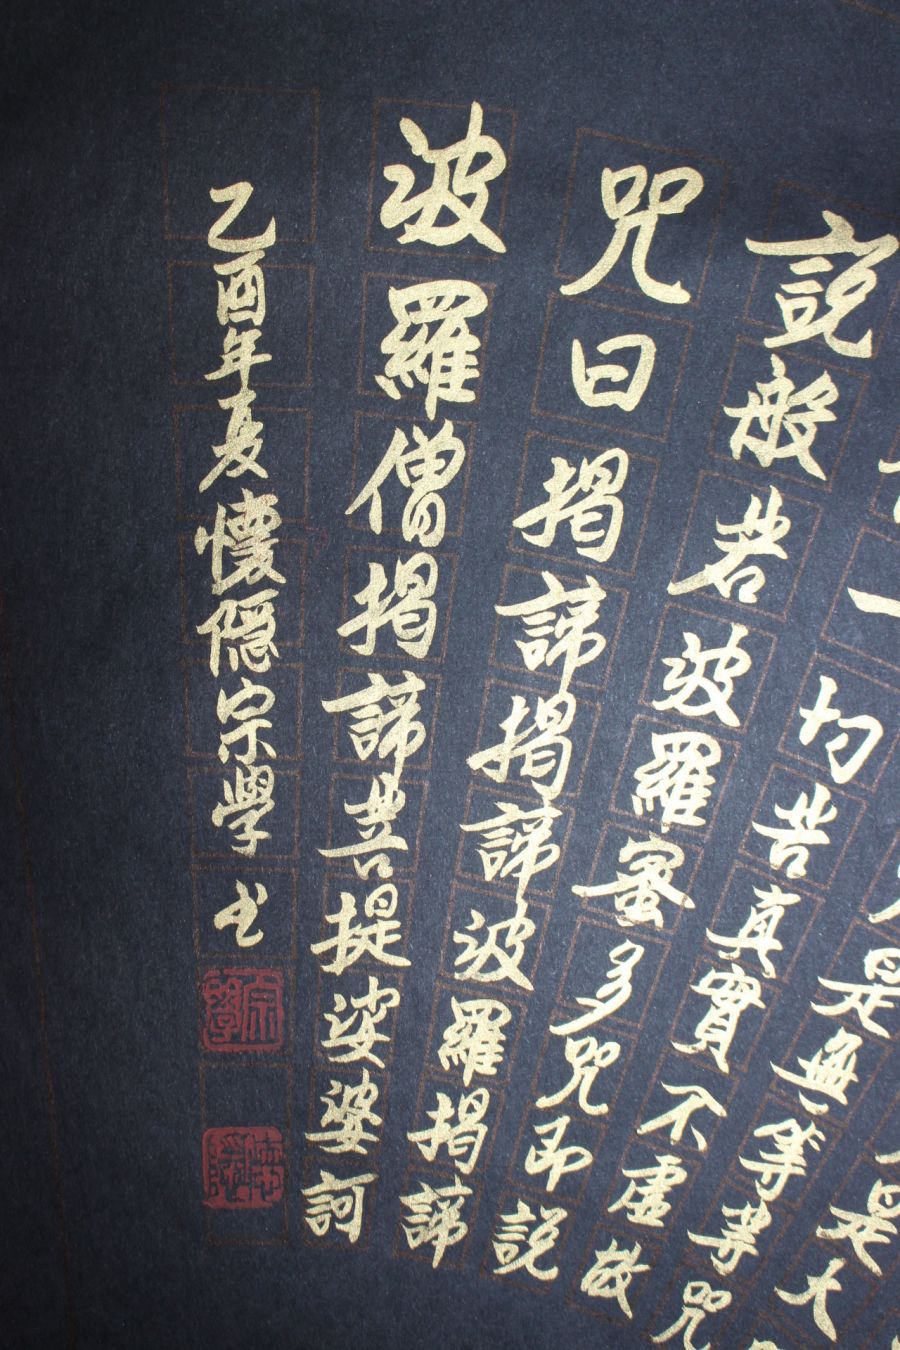 是大
是無等等咒
一切苦真實不虛故
說般若波羅蜜多咒即說
咒曰揭諦揭諦波羅揭諦
波羅僧揭諦菩提娑婆訶
乙酉年夏懷隱宗學书
宗學
懷隱